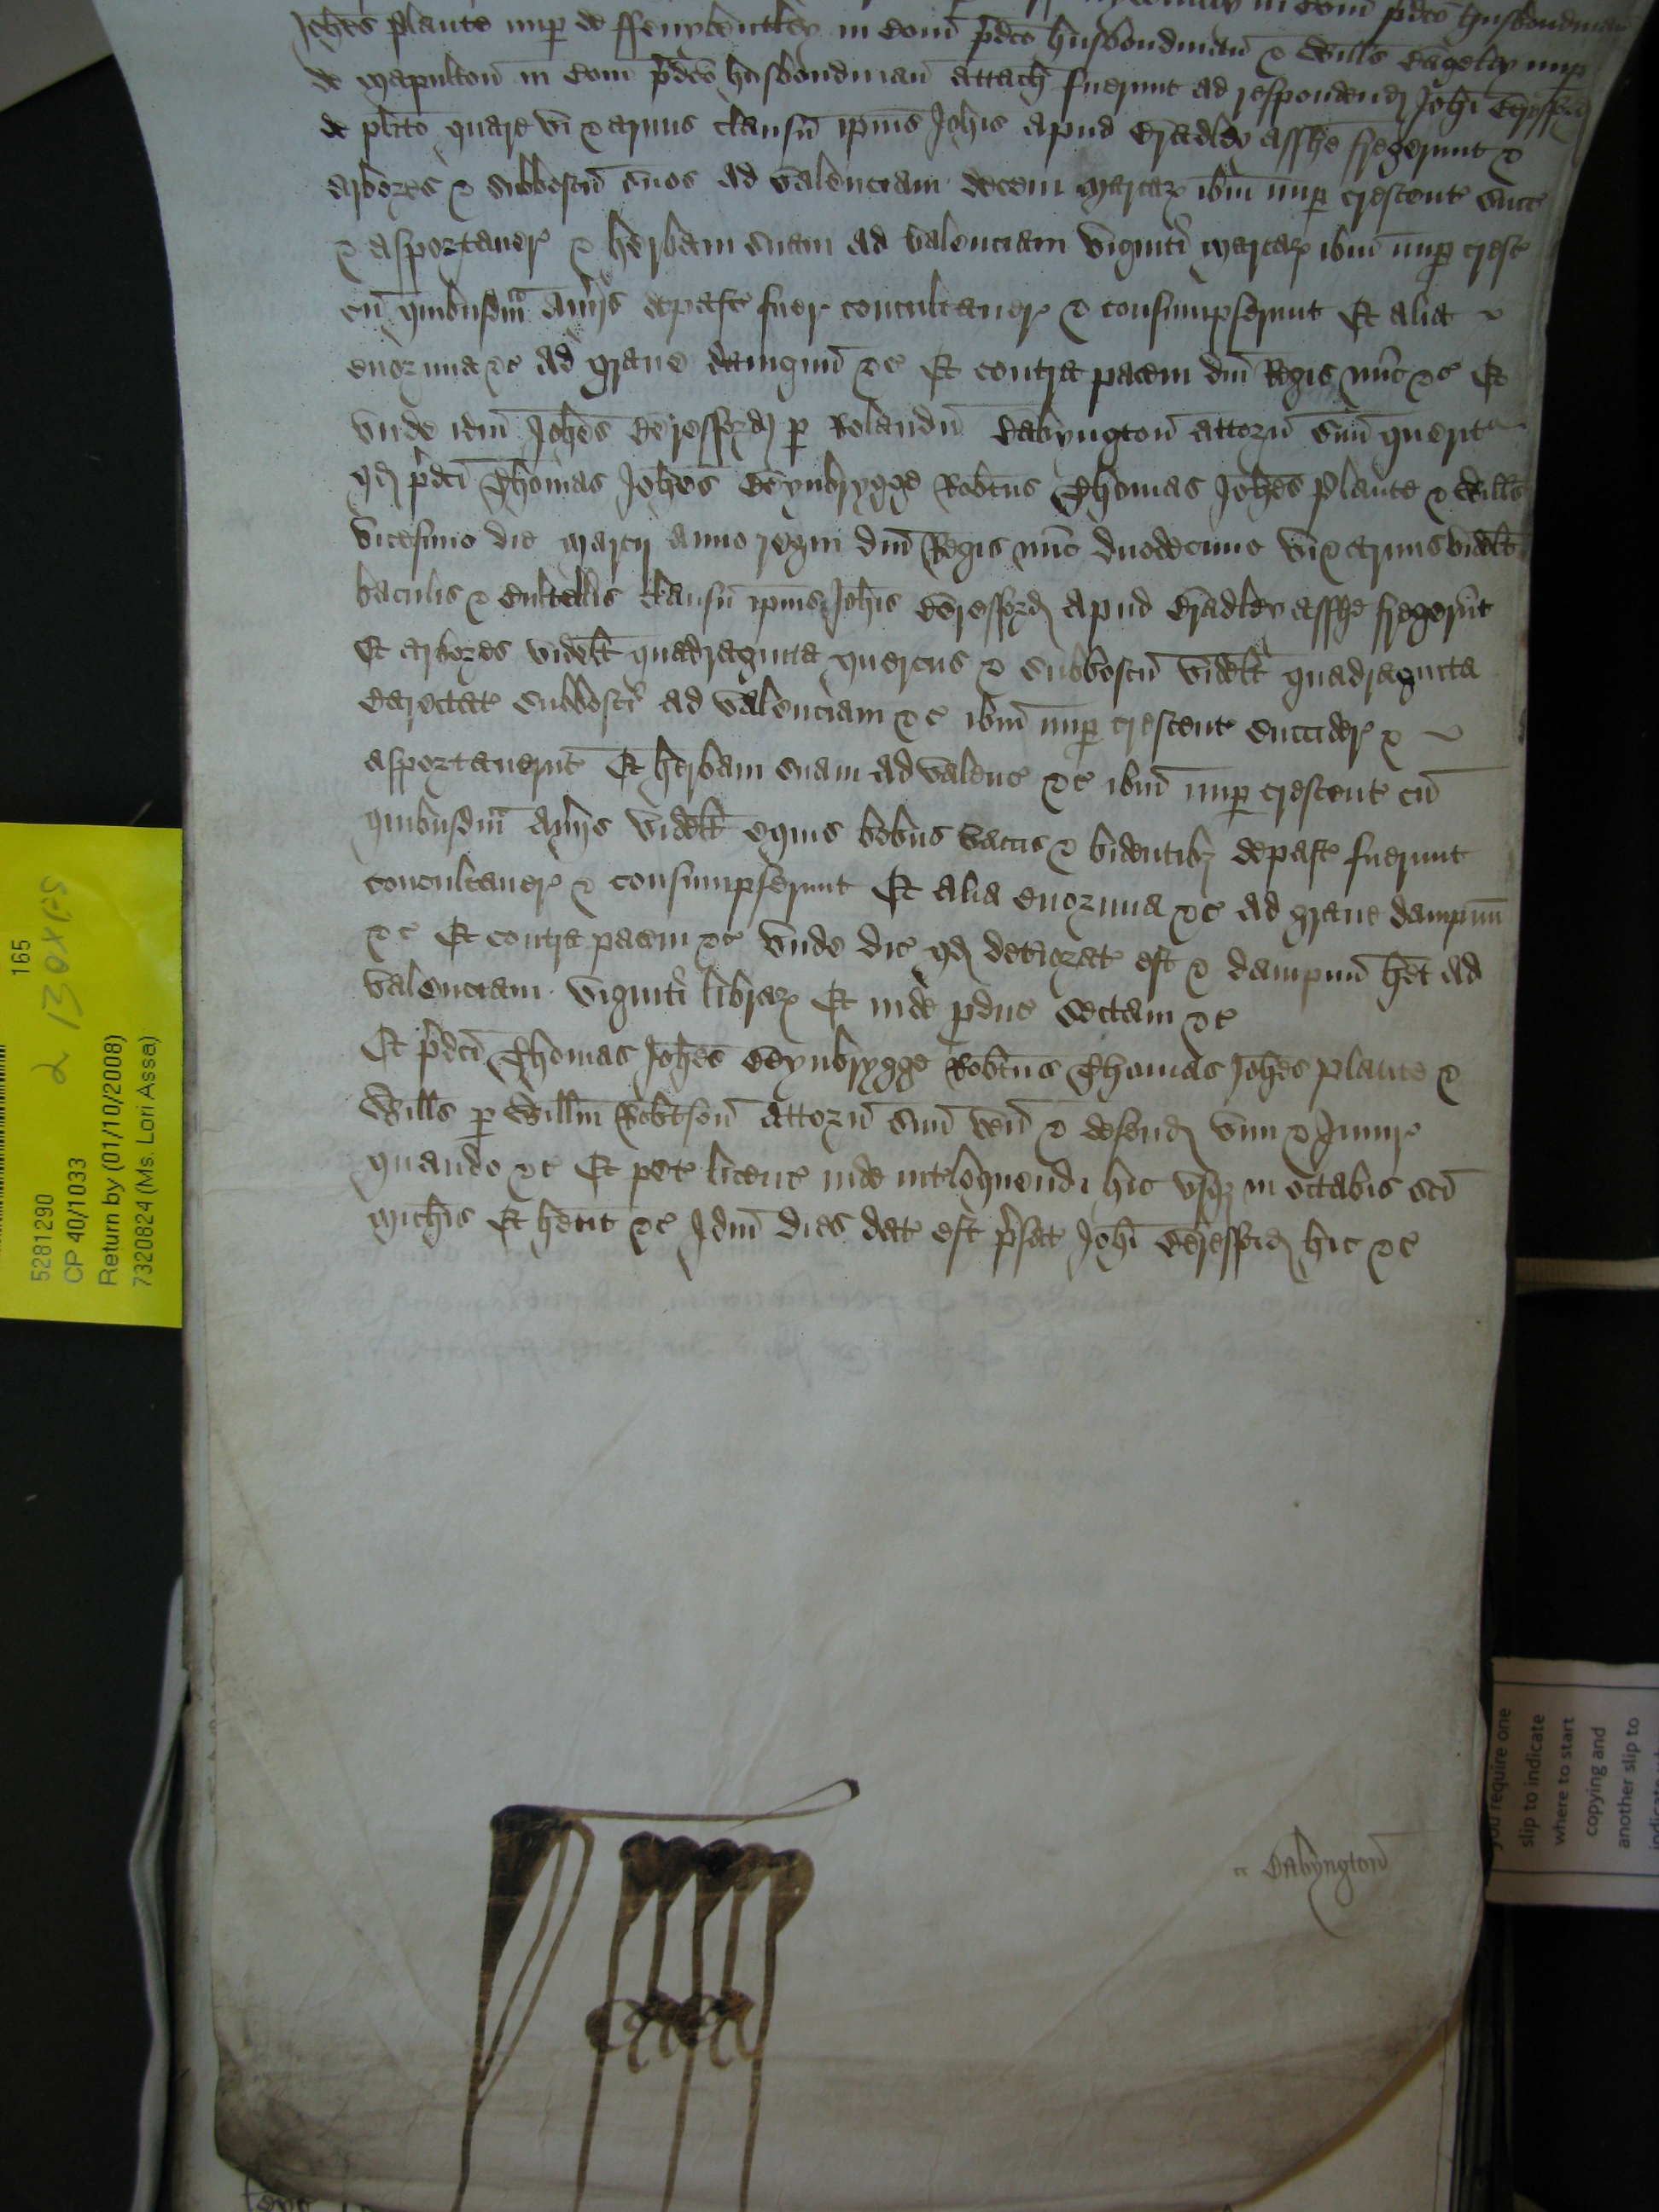 Joħes Plante nup de ffenybentley in Com̄ p̄dc̄o husbondman̄ & Wills̄ Bageley nup
de Mapulton̄ in Com̄ p̄dc̄o husbondman̄ attach̄ fuerunt ad respondend Joħi Beresford
de plito quare vi & armis clausū ipius Joħis apud Bradley assħe fregerunt &
arbores & subboscū suos ad valenciam decem marcar ibm̄ nup crescent succ
& asportauer & herbam suam ad valenciam viginti marcar ibm̄ nup cresc
cū quibusdm̄ aūijs depast fuer conculcauer & consumpserunt Et alia
enormia &c ad graue dampnū &c Et contra pacem dn̄i Regis nūc &c Et
vnde idm̄ Joħes Beresford p Rolandū Babyngton̄ attorn̄ suū querit
qd p̄dc̄i Thomas Joħes Beynbrygge Robt̄us Thomas Joħes Plante & Wills̄
vicesimo die Marcij anno regni dn̄i Regis nūc duodecimo vi & armis videlt
baculis & cultellis clausū ipius Joħis Beresford apud Bradley assħe fregerūt
Et arbores videlt quadraginta quercus & subboscū videlt quadraginta
carectat subbosci ad valenciam &c ibm̄ nup crescent succider &
asportauerūt Et herbam suam ad valenc &c ibm̄ nup crescent cū
quibusdm̄ aūijs videlt equis bobus vaccis & bidentib depast fuerunt
conculcauer & consumpserunt Et alia enormia &c ad graue dampnū
&c Et contra pacem &c vnde dic qd deteriorat est & dampnū het ad
valenciam viginti librar Et inde pduc sectam &c
Et p̄dc̄i Thomas Joħes Beynbrygge Robt̄us Thomas Joħes Plante &
Wills̄ p Willm̄ Robtson̄ attorn̄ suū ven̄ & defend vim & Iniur
quando &c Et pet licenc inde int̄loquendi hic vsq in octabis sc̄i
Mich̄is Et hent &c Idm̄ dies dat est p̄fat Joħi Beresford hic &c
Babyngton̄
165
2 139x(?)s
5281290
CP 40/1033
Return by (01/10/2008)
7320824 (Ms. Lori Assa)
you require one
slip to indicate
where to start
copying and
another slip to